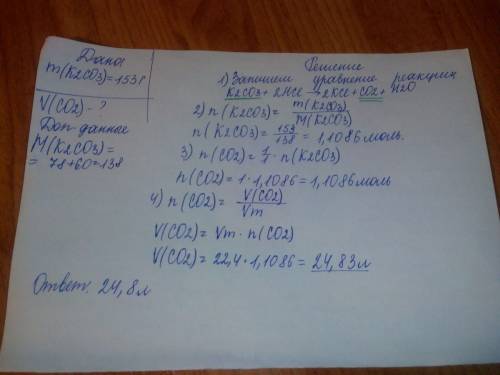 Дано
m(K2CO3)=153г
V(CO2)-?
Доп. данные
M(K2CO3)=
= 78+60=138
Решение
1) Запишем уравнение реакции
K2CO3+2HCl→2KCl+CO2+H2O
2) n(K2CO3)= m(K2CO3)/M(K2CO3)
n(K2CO3)= 153/138 = 1,1086 моль.
3) n(CO2)= 1/1 · n(K2CO3)
n(CO2)=1·1,1086=1,1086моль
4) n(CO2)= V(CO2)/Vm
V(CO2)=Vm·n(CO2)
V(CO2)=22,4·1,1086=24,83л
Ответ: 24,8л